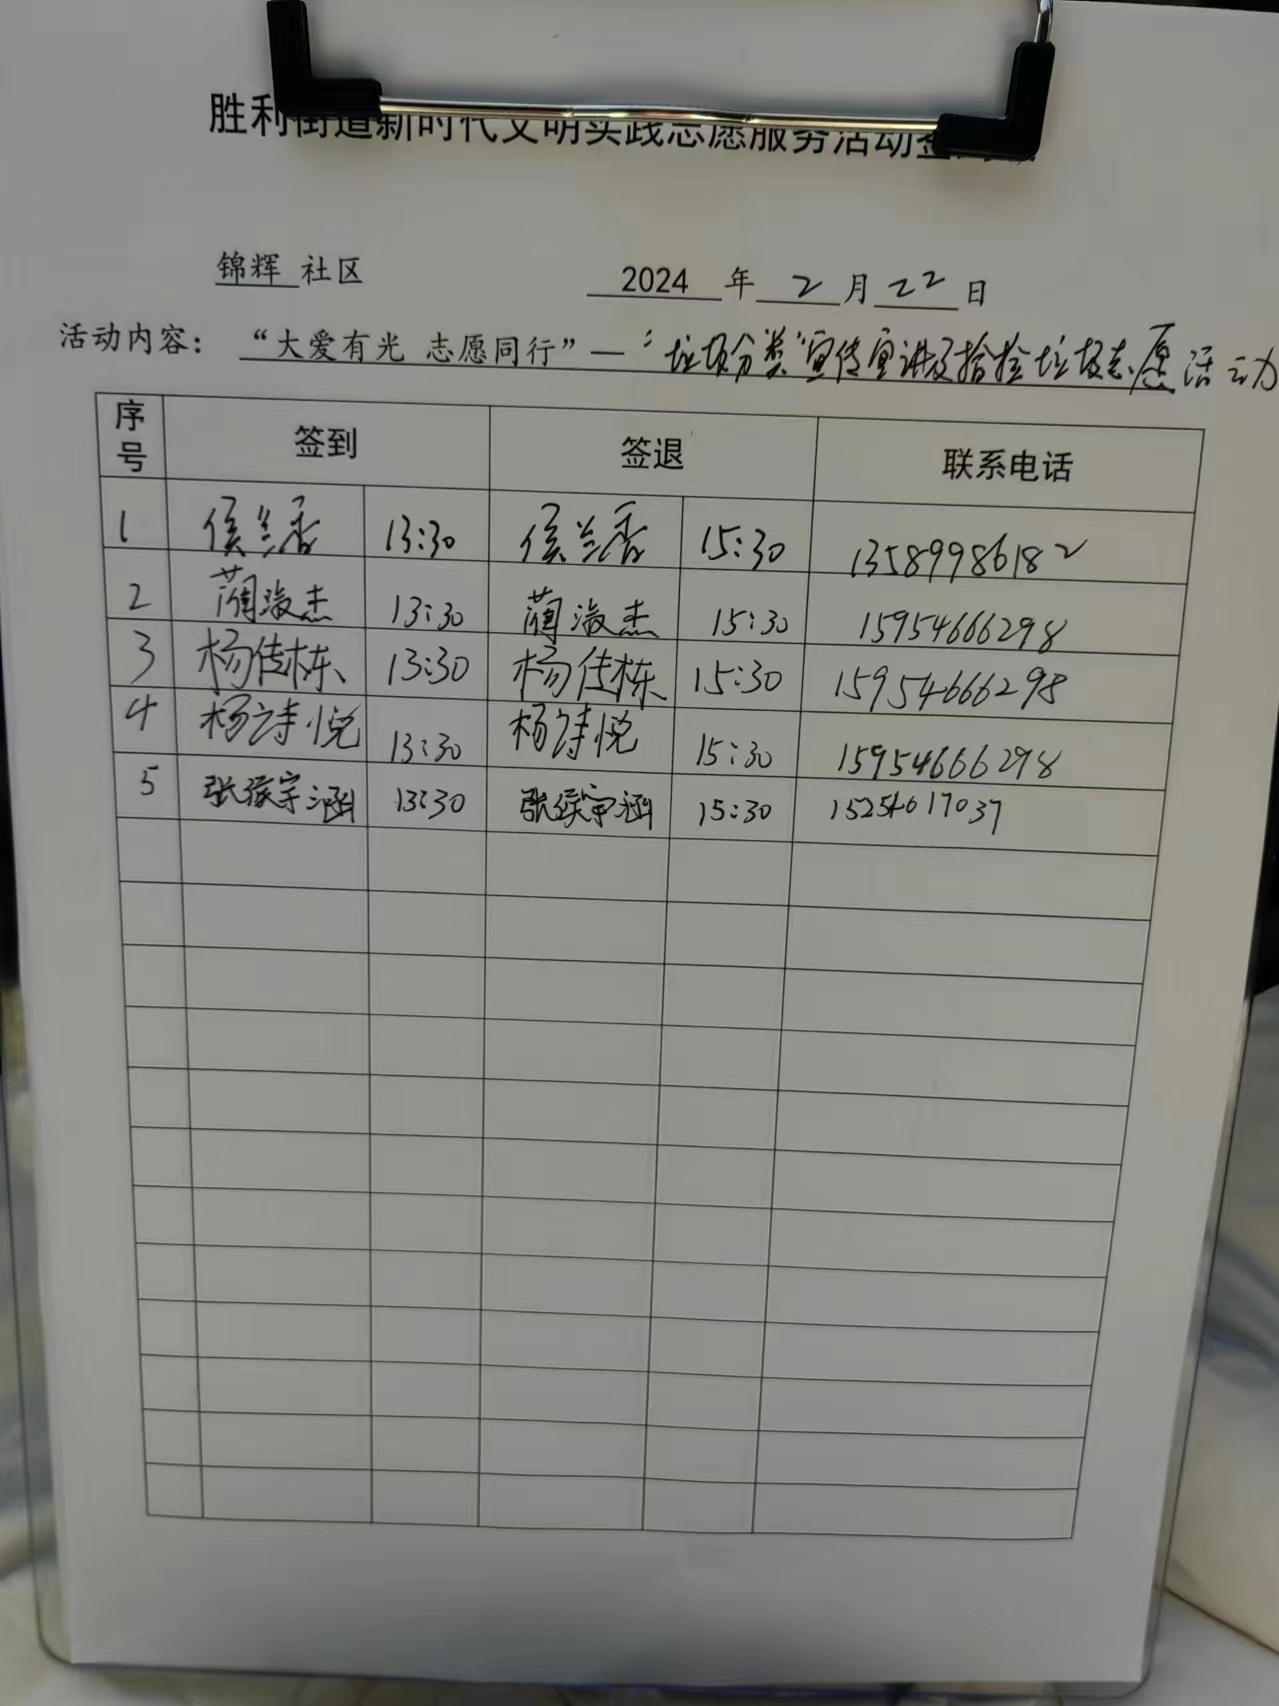 胜利街道新时代文明实践志愿服务活动签
锦辉 社区 2024 年 2 月 22 日
活动内容： “大爱有光 志愿同行”—“垃圾分类”宣传宣讲及拾捡垃圾志愿活动
序号 签到 签退 联系电话
1 侯兰香 13:30 侯兰香 15:30 13589986182
2 蔺淑杰 13:30 蔺淑杰 15:30 15954666298
3 杨佳栋 13:30 杨佳栋 15:30 15954666298
4 杨诗悦 13:30 杨诗悦 15:30 15954666298
5 张侯宗涵 13:30 张侯宗涵 15:30 15254617037